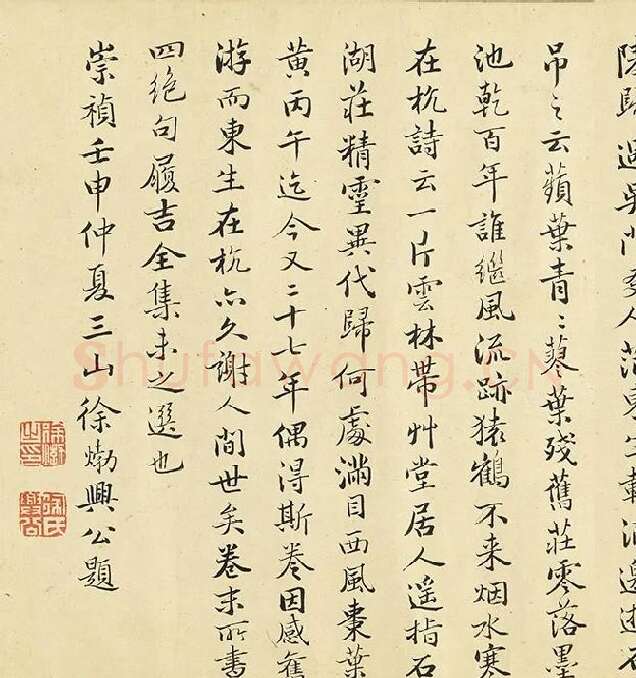 陽歸過吳門友人范東生載酒邀遊石
吊之云蘋葉青〻蓼葉殘舊莊零落墨
池乾百年誰繼風流跡猿鶴不来烟水寒
在杭詩云一片雲林帶艸堂居人遥指石
湖莊精靈異代歸何處滿目西風棗葉
黃丙午迄今又二十七年偶得斯卷因感舊
游而東生在杭亦久謝人間世矣卷末所書
四絕句履吉全集未之選也
崇禎壬申仲夏三山徐𤊹興公題
Shufawang.CN